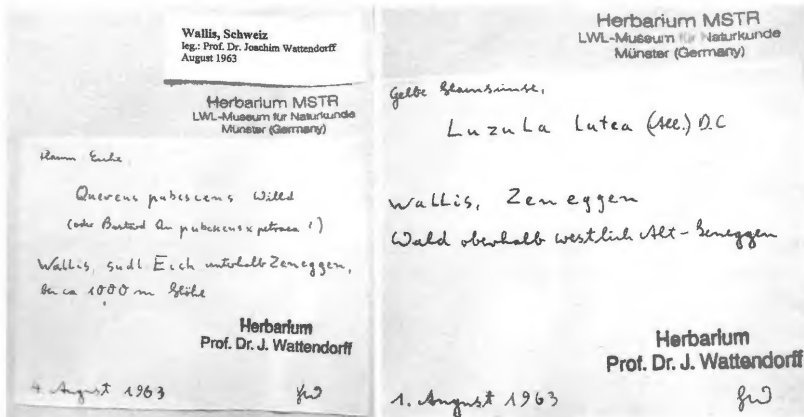 Wallis, Schweiz
leg.: Prof. Dr. Joachim Wattendorff
August 1963
Herbarium MSTR
LWL-Museum für Naturkunde
Münster (Germany)
Flaum Eiche,
Quercus pubescens Willd
(oder Bastard Qu pubescens x petraea ?)
Wallis, südl Eich unterhalb Zeneggen,
bei ca 1000 m Höhe
Herbarium
Prof. Dr. J. Wattendorff
4. August 1963 JW
Herbarium MSTR
LWL-Museum für Naturkunde
Münster (Germany)
Gelbe Hainsimse,
Luzula lutea (All.) D.C
Wallis, Zeneggen
Wald oberhalb westlich Alt-Zeneggen
Herbarium
Prof. Dr. J. Wattendorff
1. August 1963 JW